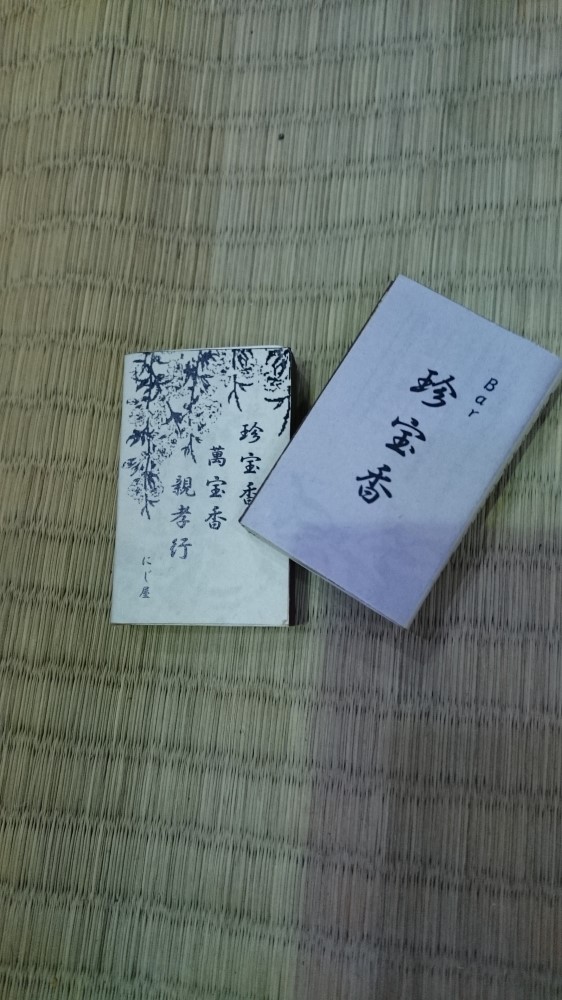 珍宝香
萬宝香
親孝行
にじ屋
Bar
珍宝香